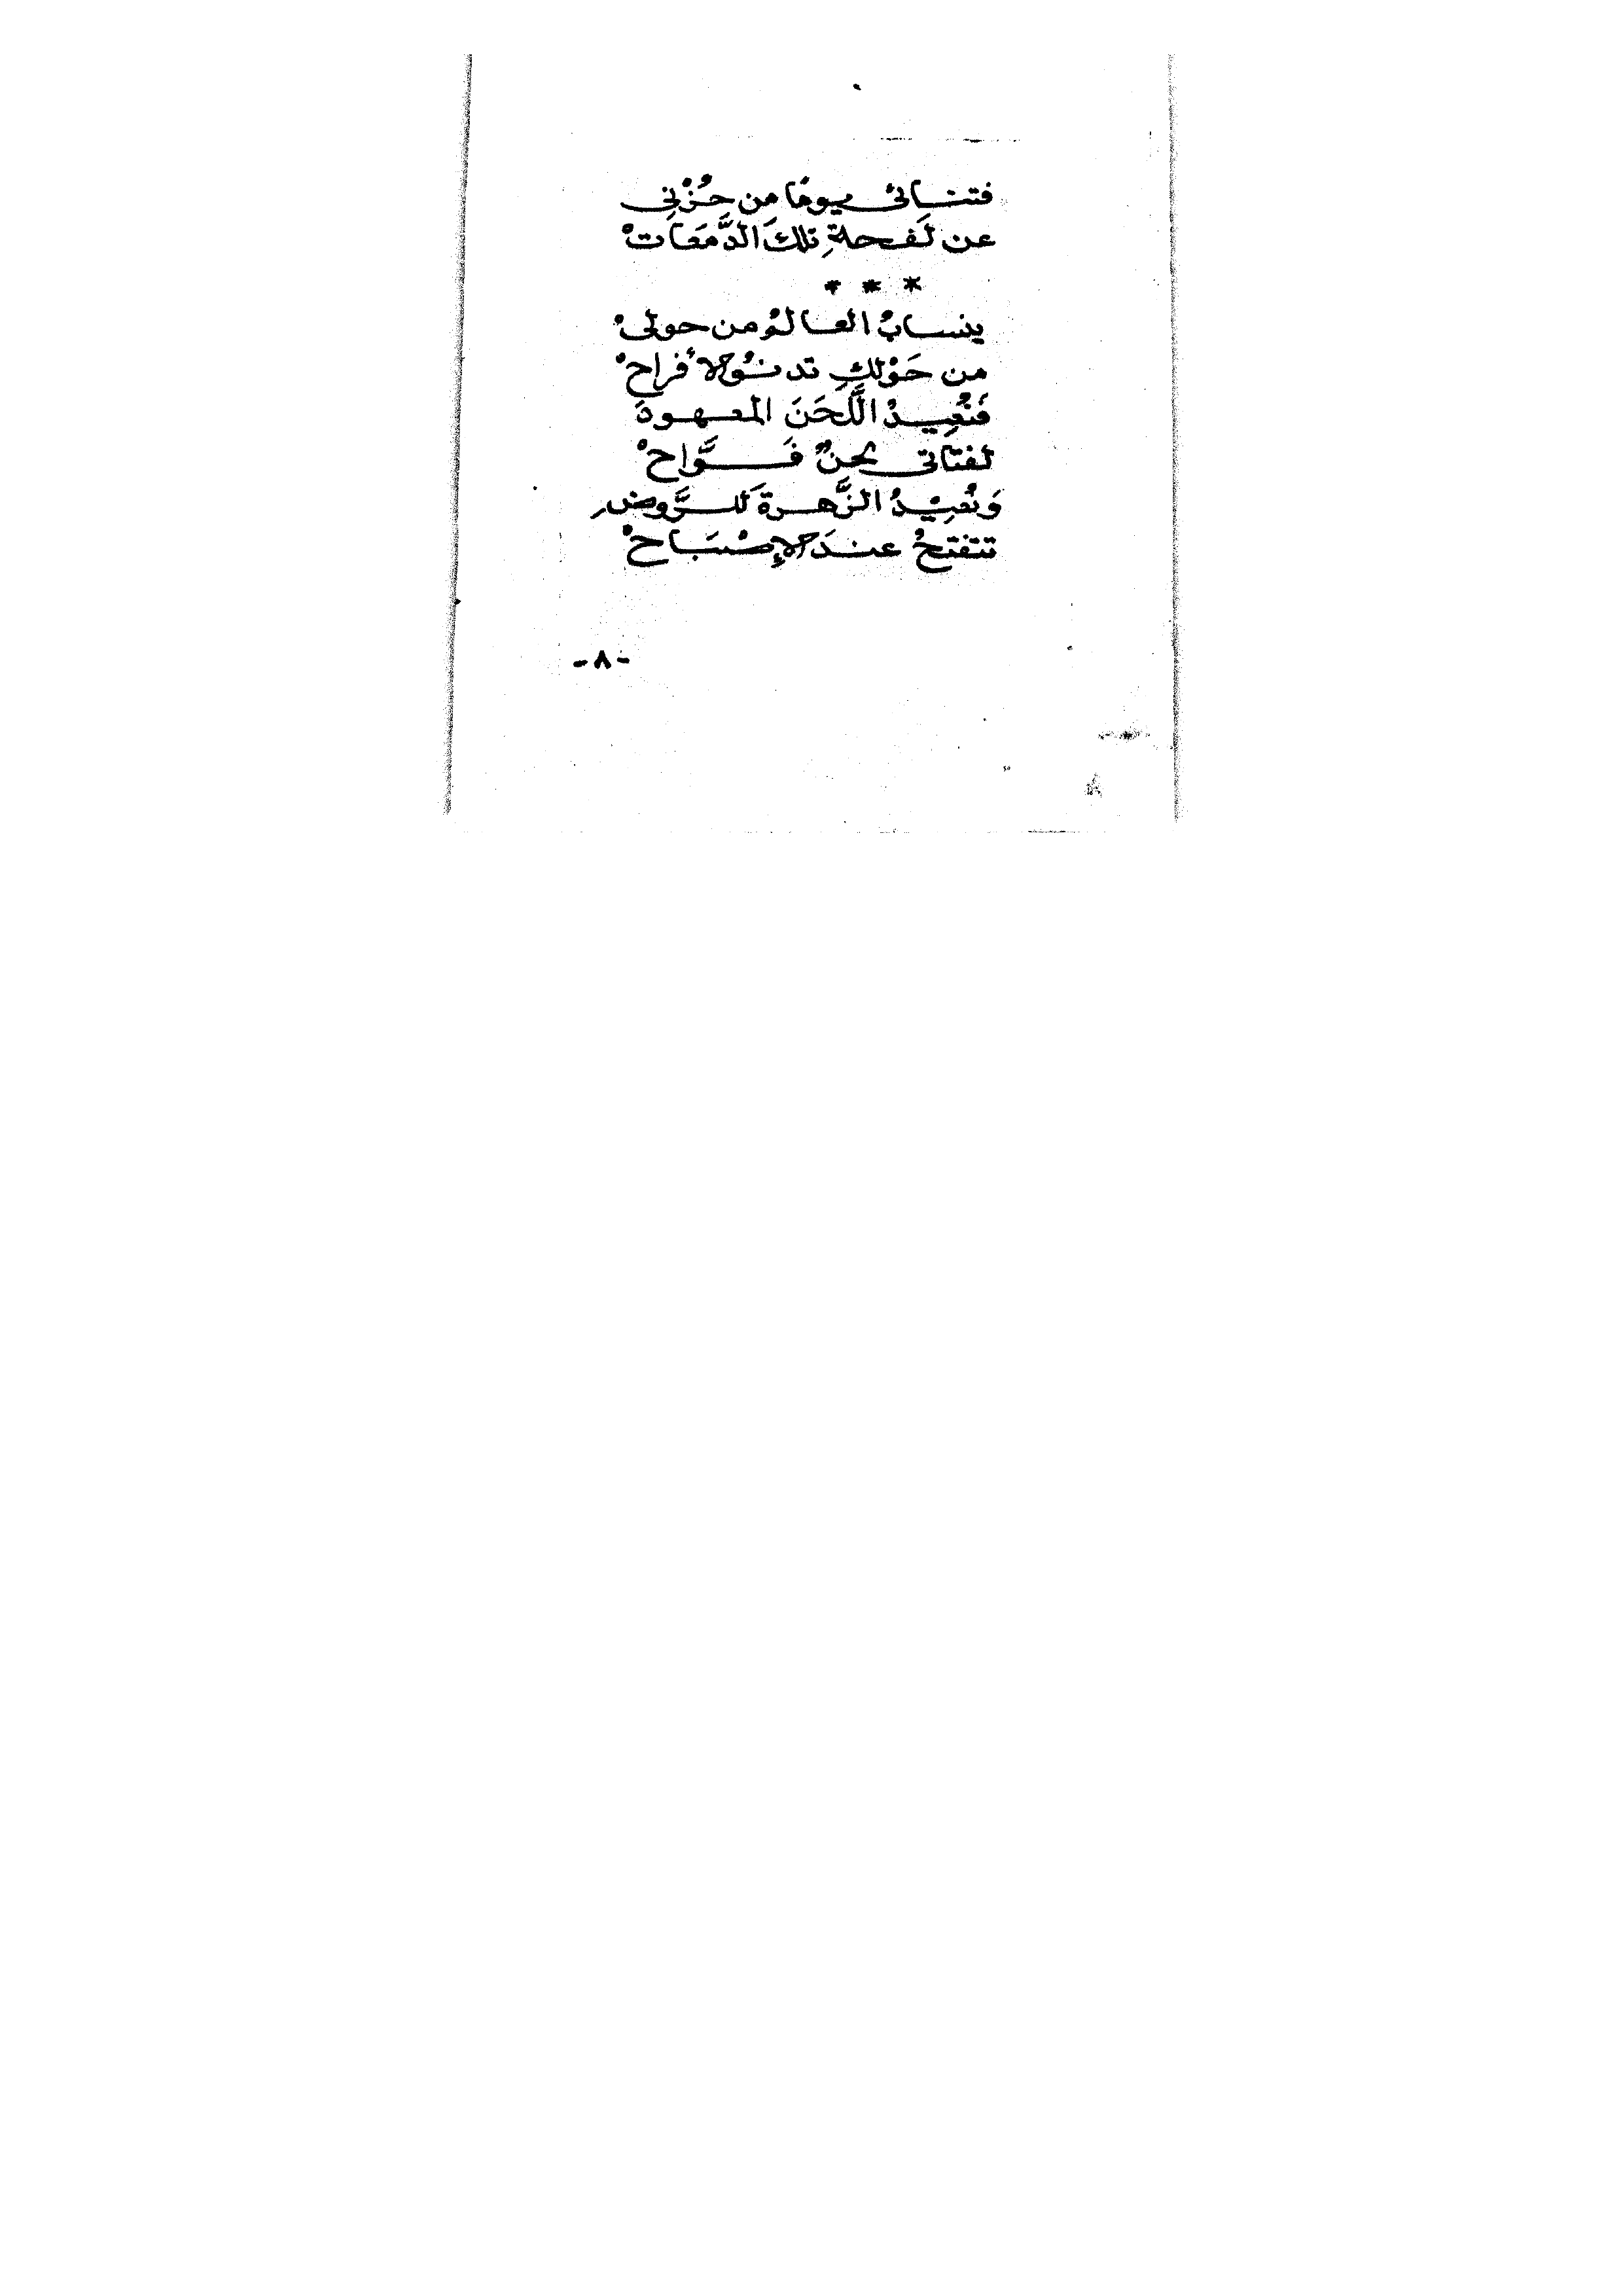 فتنسائى يومًا من حُزْنِى
عن لَفحلةِ تلكَ الدَّمَعَاتْ
* * *
ينسابُ العالمُ من حولىْ
من حَوْلكِ تدنُو الأفراحْ
فَنُعِيدُ اللَّحَنَ المعهودَ
لفتاتى لحنٌ فَوَّاحْ
وَنُعِيْدُ الزَّهرةَ للرَّوضِ
تتفتحُ عندَ الإصْبَاحْ
-٨-